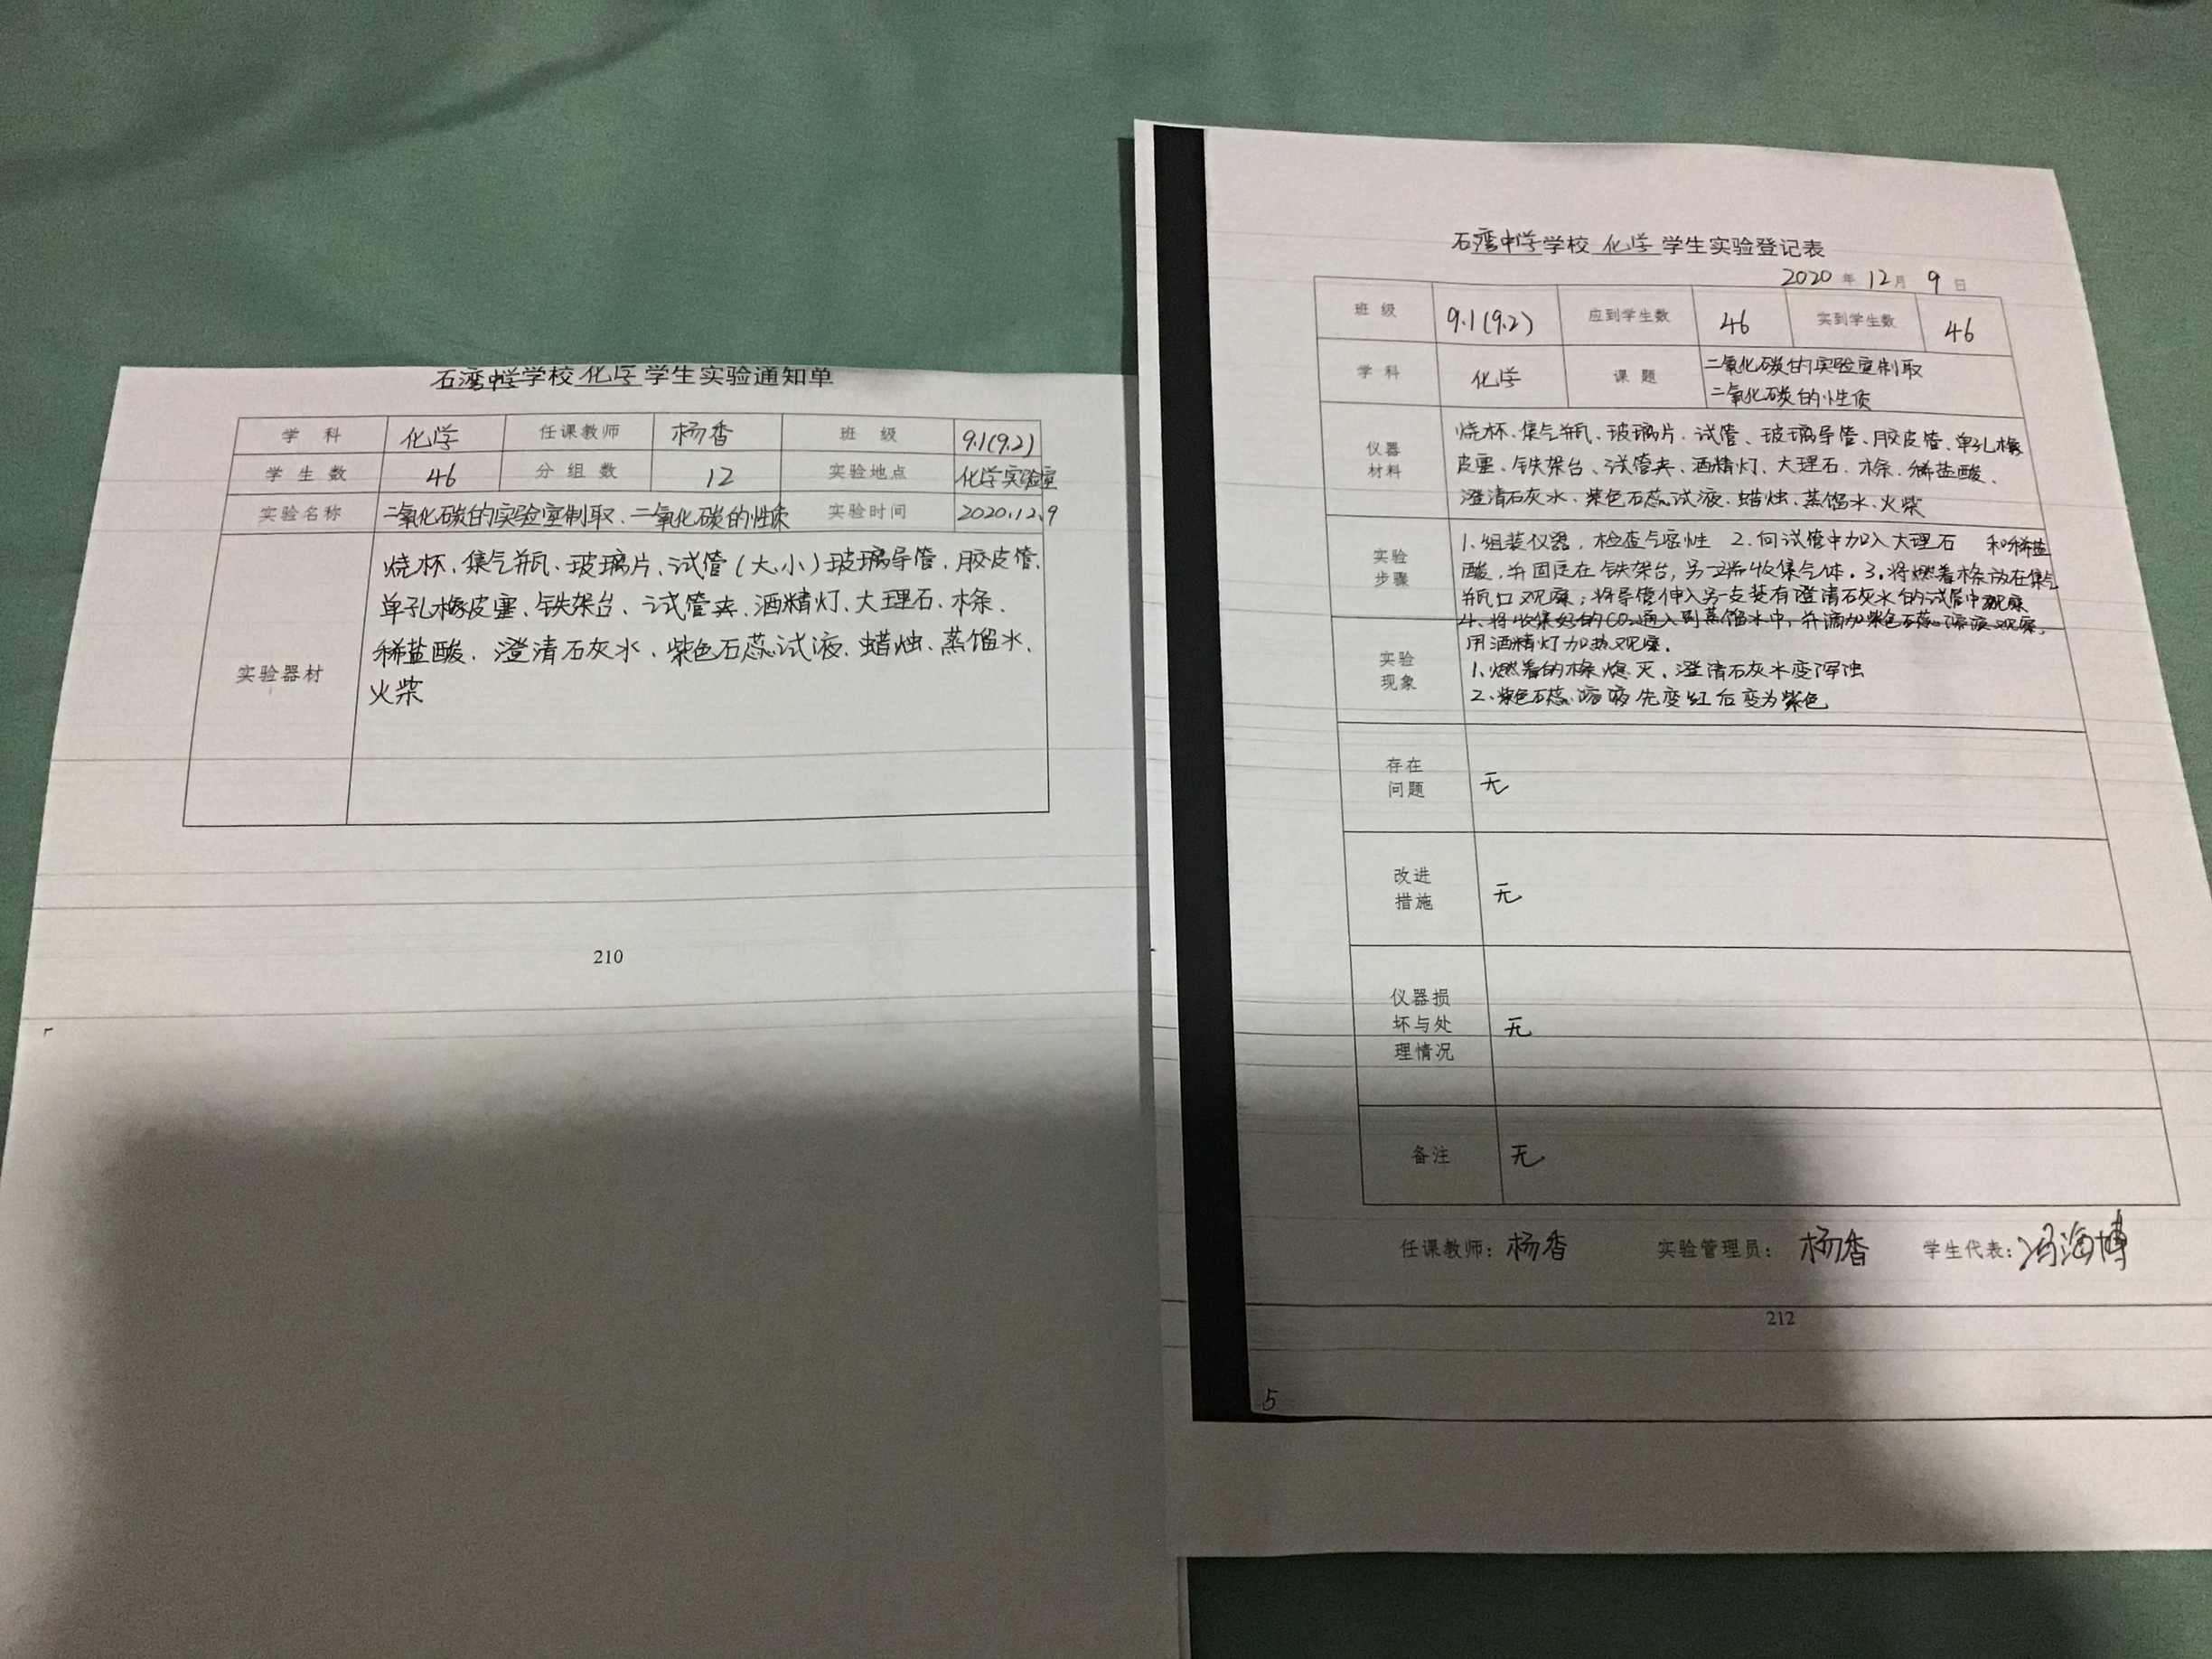 石湾中学学校 化学 学生实验通知单
学 科 化学 任课教师 杨香 班 级 9.1(9.2)
学 生 数 46 分 组 数 12 实验地点 化学实验室
实验名称 二氧化碳的实验室制取、二氧化碳的性质 实验时间 2020.12.9
实验器材
烧杯、集气瓶、玻璃片、试管(大、小)玻璃导管、胶皮管、
单孔橡皮塞、铁架台、试管夹、酒精灯、大理石、木条、
稀盐酸、澄清石灰水、紫色石蕊试液、蜡烛、蒸馏水、
火柴
210
石湾中学学校 化学 学生实验登记表
2020 年 12 月 9 日
班 级 9.1(9.2) 应到学生数 46 实到学生数 46
学 科 化学 课 题 二氧化碳的实验室制取
二氧化碳的性质
仪器
材料
烧杯、集气瓶、玻璃片、试管、玻璃导管、胶皮管、单孔橡
皮塞、铁架台、试管夹、酒精灯、大理石、木条、稀盐酸、
澄清石灰水、紫色石蕊试液、蜡烛、蒸馏水、火柴
实验
步骤
1.组装仪器,检查气密性 2.向试管中加入大理石 和稀盐
酸,并固定在铁架台,另一端收集气体.3.将燃着木条放在集气
瓶口观察;将导管伸入另一支装有澄清石灰水的试管中观察
4.将收集好的CO2通入到蒸馏水中,并滴加紫色石蕊溶液观察,
用酒精灯加热观察.
实验
现象
1.燃着的木条熄灭,澄清石灰水变浑浊
2.紫色石蕊溶液先变红后变为紫色
存在
问题
无
改进
措施
无
仪器损
坏与处
理情况
无
备注 无
任课教师: 杨香 实验管理员: 杨香 学生代表: 冯海博
212
5